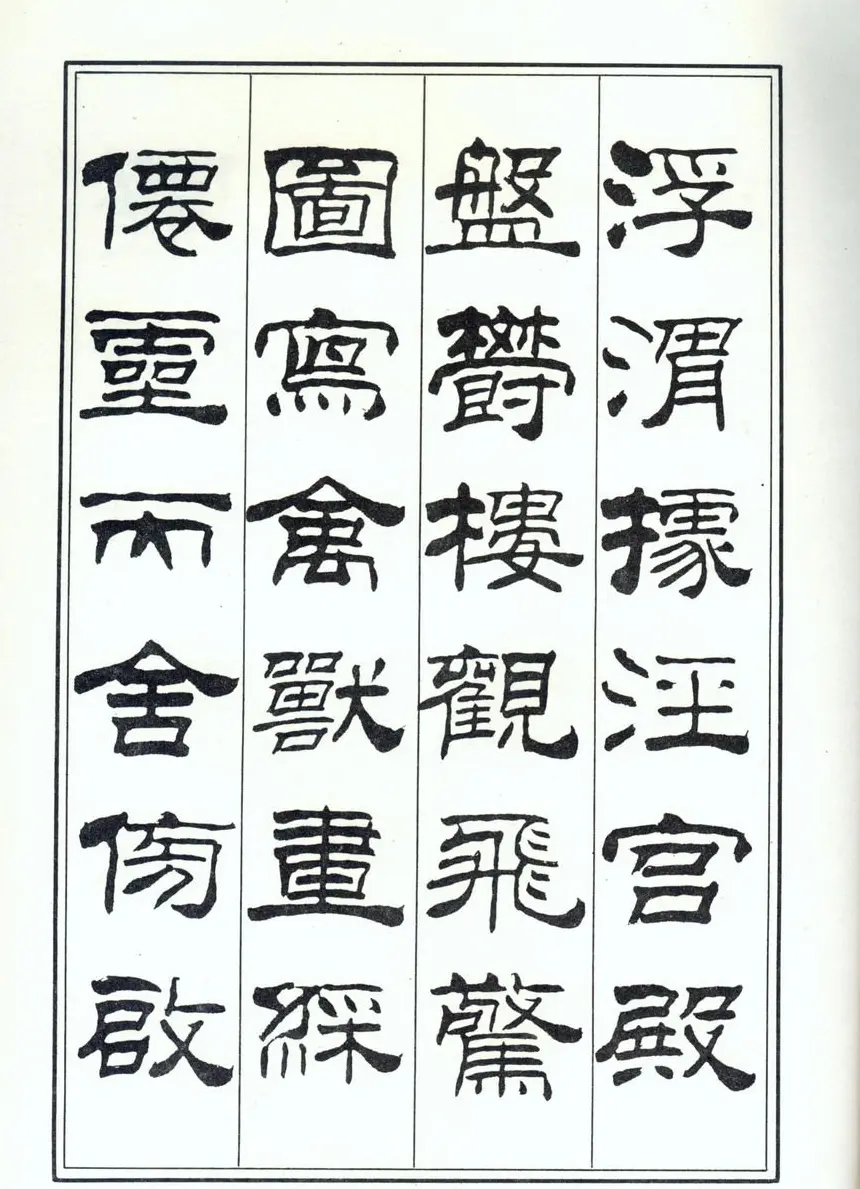 浮渭據涇宮殿
盤鬱樓觀飛驚
圖寫禽獸畫綵
僊靈丙舍傍啟